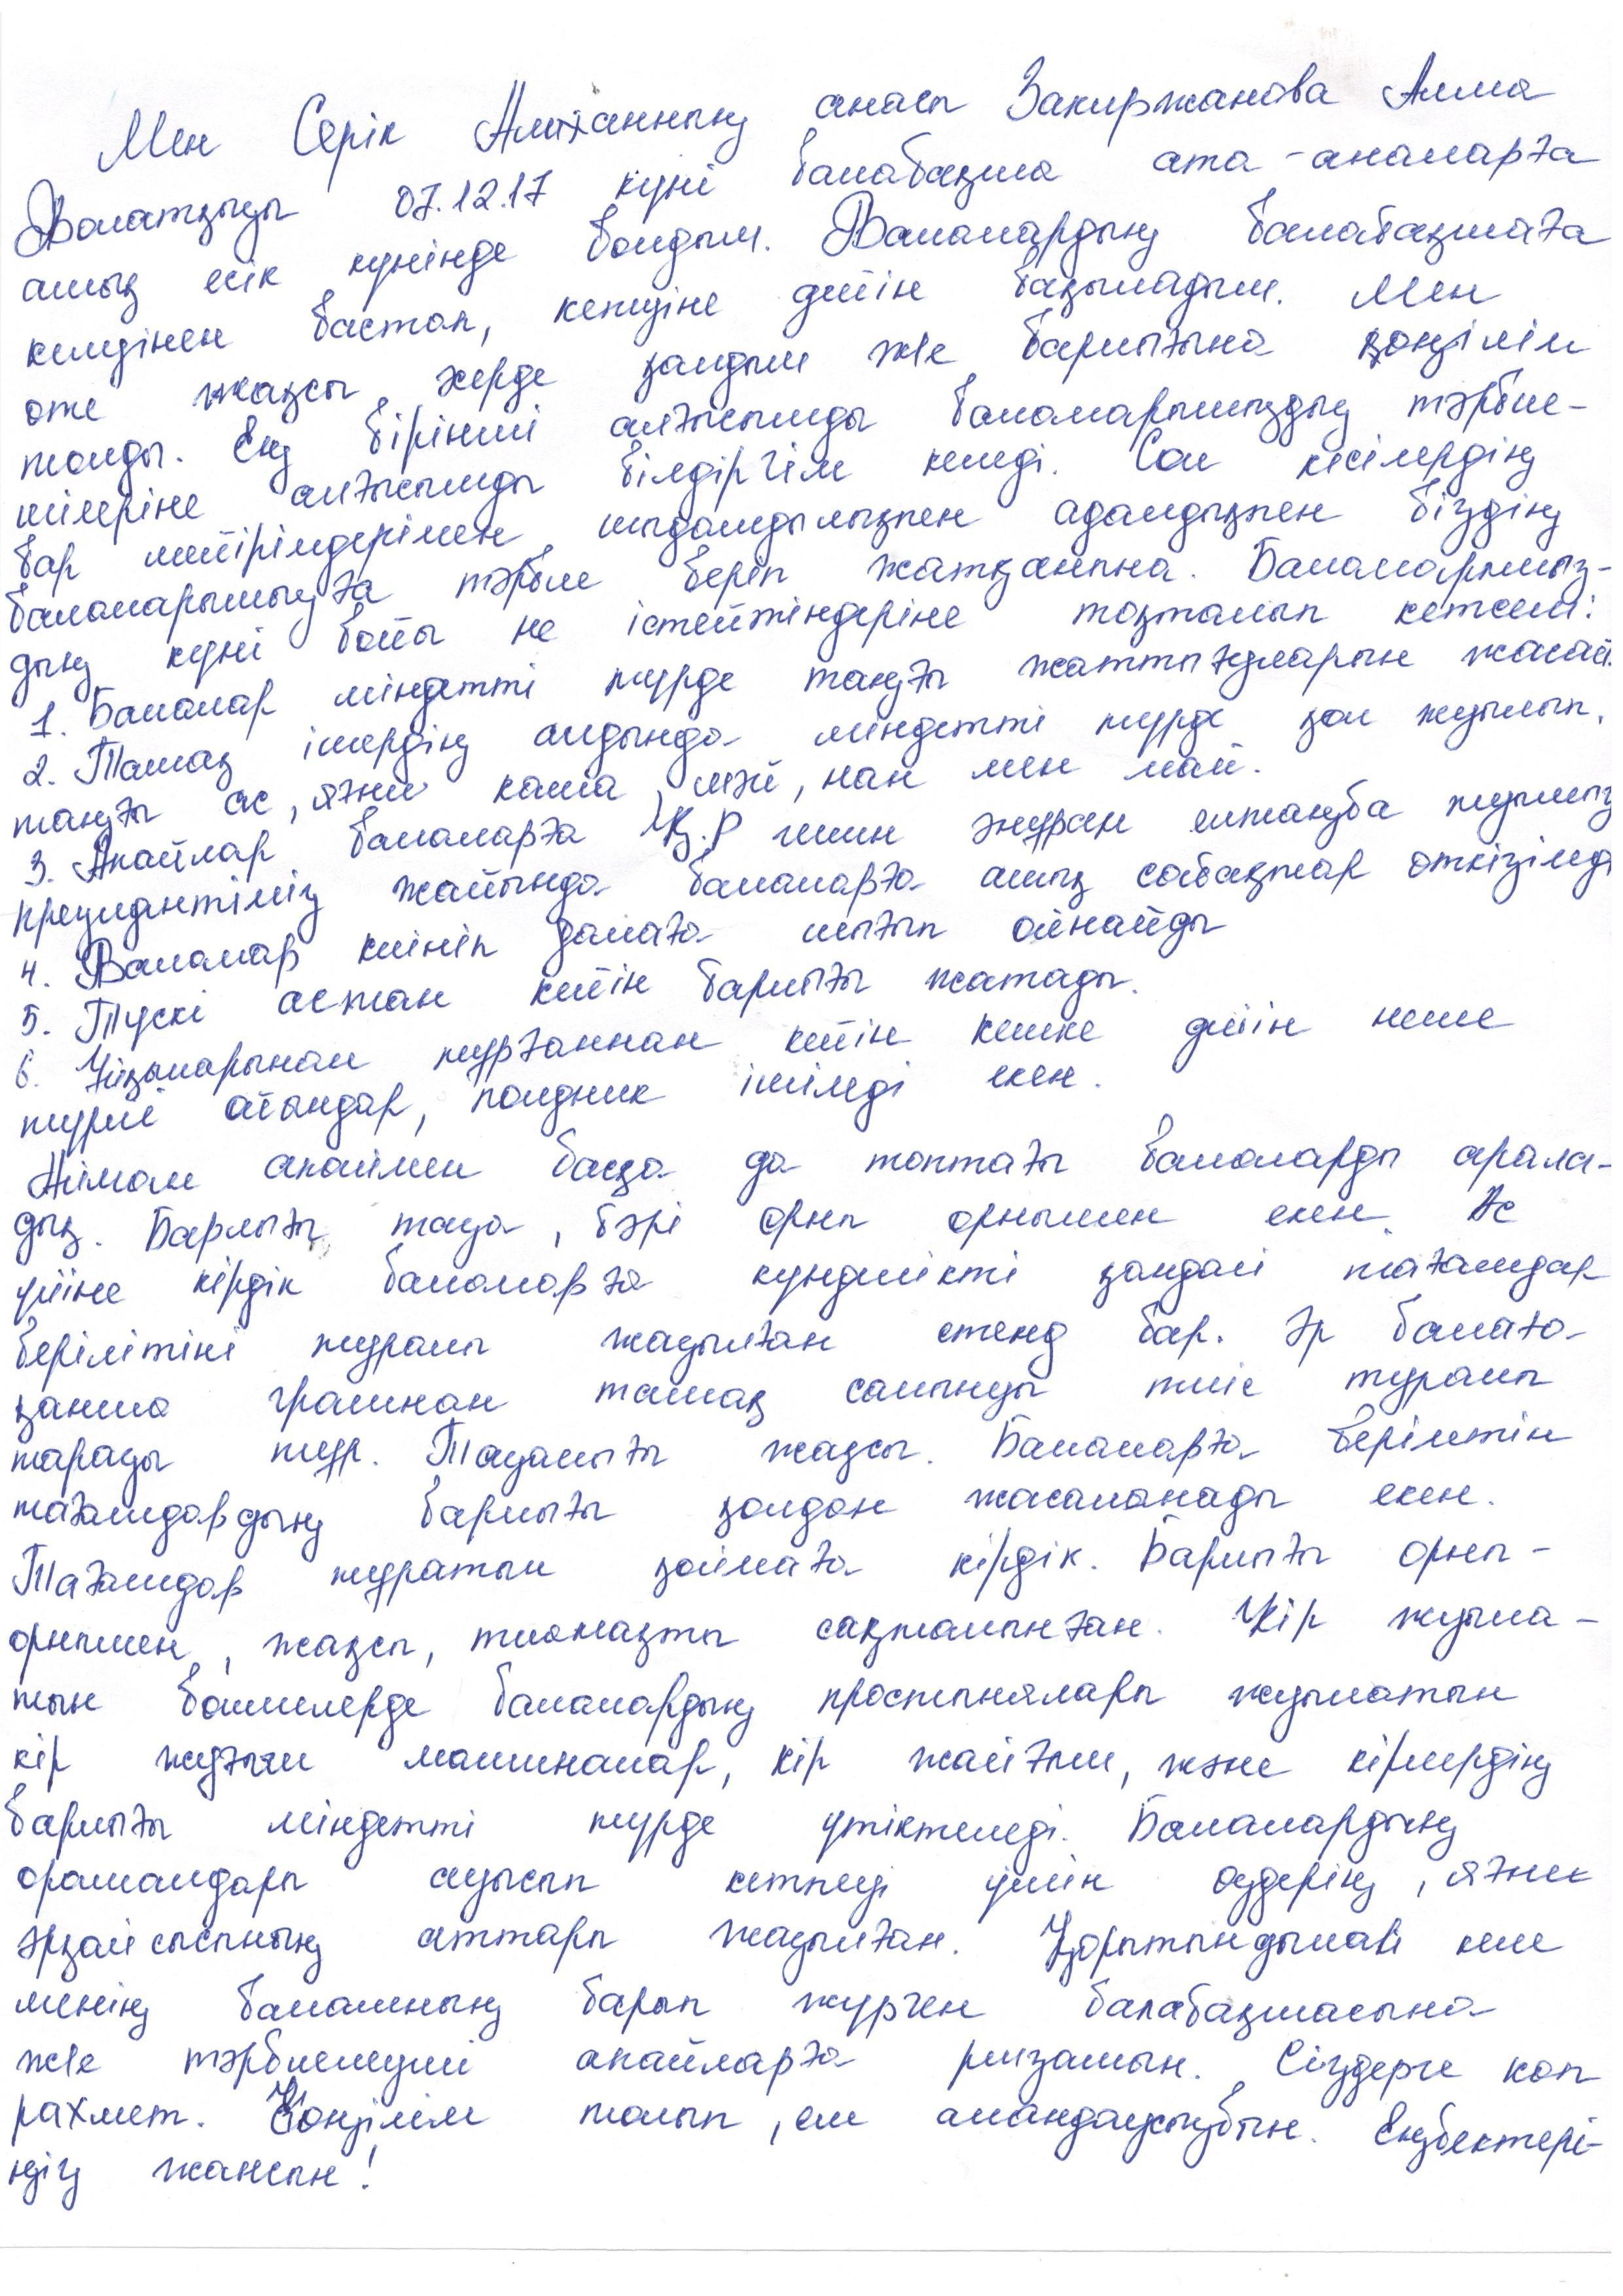 Мен Серік Алиханның анасы Закиржанова Алма
Болатқызы 07.12.17 күні балабақша ата-аналарға
ашық есік күнінде болдым. Балалардың балабақшаға
келуінен бастап, кешіне дейін бақыладым. Мен
өте жақсы жерде қалдым ж/е барлығына көңілім
толды. Ең бірінші алғысымды балаларымыздың тәрбие-
шілеріне алғысымды білдіргім келеді. Сол кісілердің
бар мейірімдерімен шыдамдылықпен адалдықпен біздің
балаларымызға тәрбие беріп жатқанына. Балаларымыз-
дың күні бойы не істейтіндеріне тоқталып кетсем:
1. Балалар міндетті түрде таңғы жаттығуларын жасай.
2. Тамақ ішердің алдында міндетті түрде қол жуылып,
таңғы ас, яғни каша, шәй, нан мен май.
3. Апайлар балаларға Қ.Р гимн әнұран елтаңба туымыз
президентіміз жайында балаларға ашық сабақтар өткізілді
4. Балалар киініп далаға шығып ойнайды
5. Түскі астан кейін барлығы жатады.
6. Ұйқыларынан тұрғаннан кейін кешке дейін неше
түрлі ойындар, полдник ішіледі екен.
апаймен басқа да топтағы балаларды арала-
дық. Барлығы таза, бәрі орны орнымен екен. Ас
үйіне кірдік балаларға күнделікті қандай тағамдар
берілетіні туралы жазылған стенд бар. Әр балаға
қанша грамнан тамақ салынуы тиіс туралы
таразы тұр. Тазалығы жақсы. Балаларға берілетін
тағамдардың барлығы қолдан жасаланады екен.
Тағамдар тұратын қоймаға кірдік. Барлығы орны-
орнымен, жақсы, тиянақты сақталынған. Кір жуыла-
тын бөлмелерде балалардың простынялары жуылатын
кір жуғыш машиналар, кір жайғыш, және кірлердің
барлығы міндетті түрде үтіктеледі. Балалардың
орамалдары ауысып кетпеуі үшін өздерің, яғни
әрқайсысының аттары жазылған. Қорытындылай келе
менің баламның барып жүрген балабақшасына
ж/е тәрбиелеуші апайларға ризамын. Сіздерге көп
рахмет. Көңілім толып, ем алаңдаусызбын. Еңбектері-
ңіз жансын!